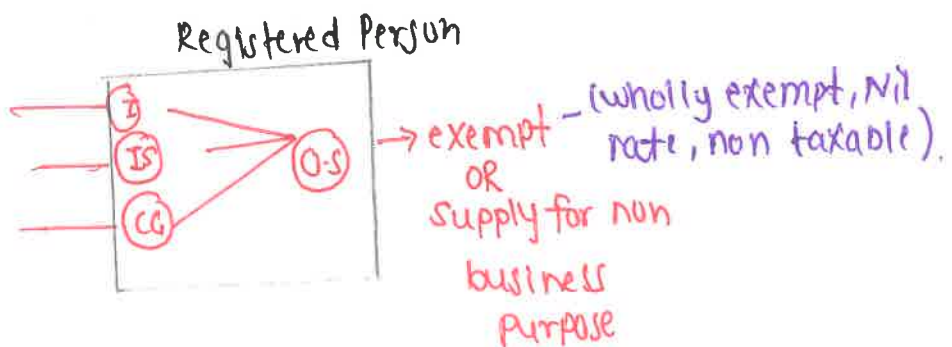 Registered Person
I
IS
CG
O-S
→ exempt - (wholly exempt, Nil
rate, non taxable).
OR
supply for non
business
purpose